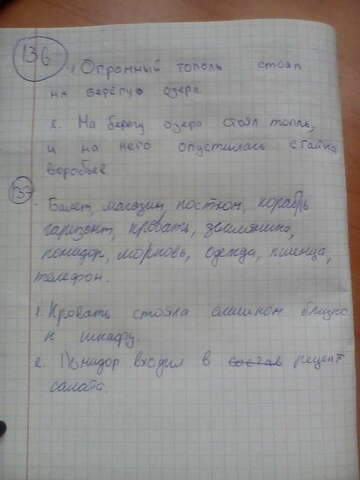 136
1. Огромный тополь стоял
на берегу озера
2. На берегу озера стоял тополь,
и на него опустилась стайка
воробьёв.
137
Билет, магазин, костюм, корабль
горизонт, кровать, земляника,
помидор, морковь, одежда, пшеница,
телефон.
1. Кровать стояла слишком близко
к шкафу.
2. Помидор входил в состав рецепт
салата.